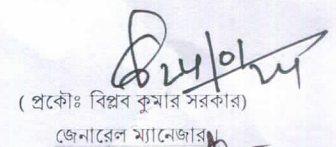 ( প্রকৌঃ বিপ্লব কুমার সরকার)
জেনারেল ম্যানেজার